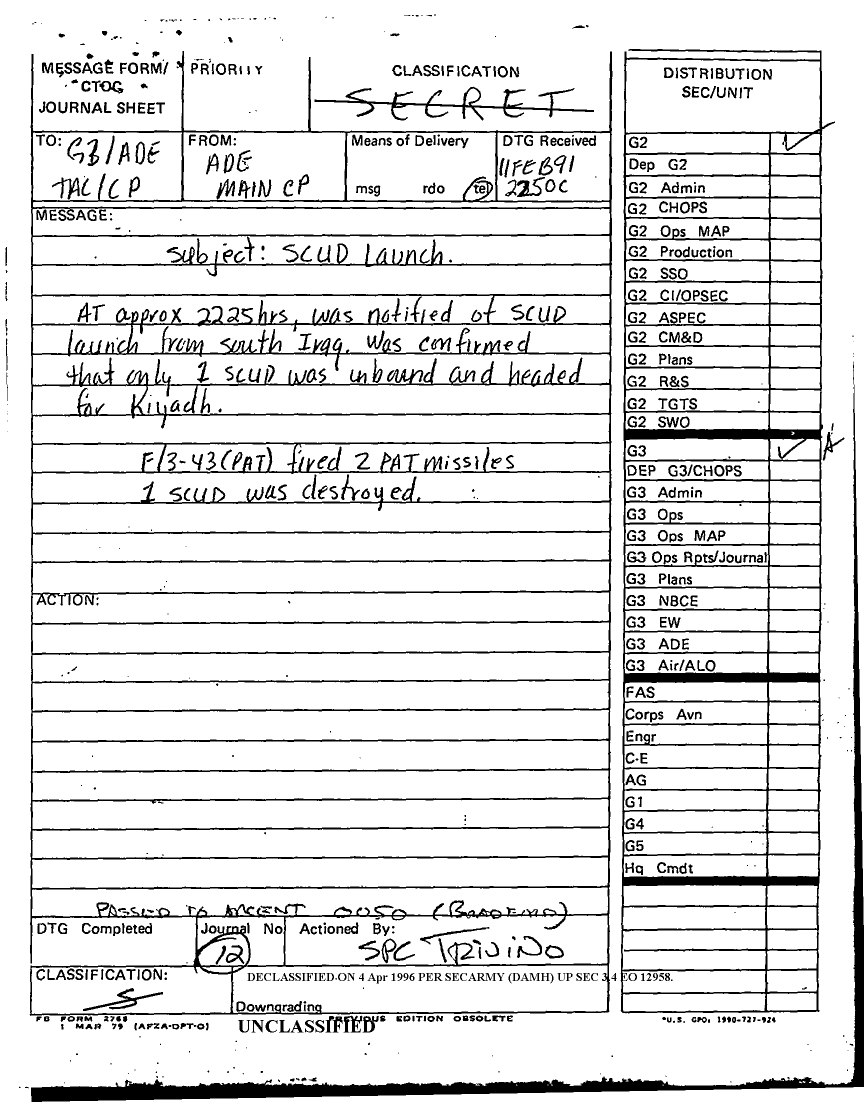 MESSAGE FORM/
CTOG
JOURNAL SHEET
PRIORITY
CLASSIFICATION
SECRET
TO: G3/ADE
TAC/CP
FROM:
ADE
MAIN CP
Means of Delivery
msg rdo tel
DTG Received
11FEB91
2250C
MESSAGE:
Subject: SCUD Launch.
AT approx 2225hrs, was notified of SCUD
launch from south Iraq. Was confirmed
that only 1 SCUD was inbound and headed
for Riyadh.
F/3-43(PAT) fired 2 PAT missiles
1 SCUD was destroyed.
ACTION:
PASSED TO ARCENT 0050
DTG Completed
Journal No
12
Actioned By:
SPC TRIVINO
CLASSIFICATION:
S
DECLASSIFIED ON 4 Apr 1996 PER SECARMY (DAMH) UP SEC 3.4 EO 12958.
Downgrading
FB FORM 2768
1 MAR 79 (AFZA-DPT-O)
UNCLASSIFIED
PREVIOUS EDITION OBSOLETE
*U.S. GPO: 1990-727-924
DISTRIBUTION
SEC/UNIT
G2
Dep G2
G2 Admin
G2 CHOPS
G2 Ops MAP
G2 Production
G2 SSO
G2 CI/OPSEC
G2 ASPEC
G2 CM&D
G2 Plans
G2 R&S
G2 TGTS
G2 SWO
G3
A
DEP G3/CHOPS
G3 Admin
G3 Ops
G3 Ops MAP
G3 Ops Rpts/Journal
G3 Plans
G3 NBCE
G3 EW
G3 ADE
G3 Air/ALO
FAS
Corps Avn
Engr
C-E
AG
G1
G4
G5
Hq Cmdt